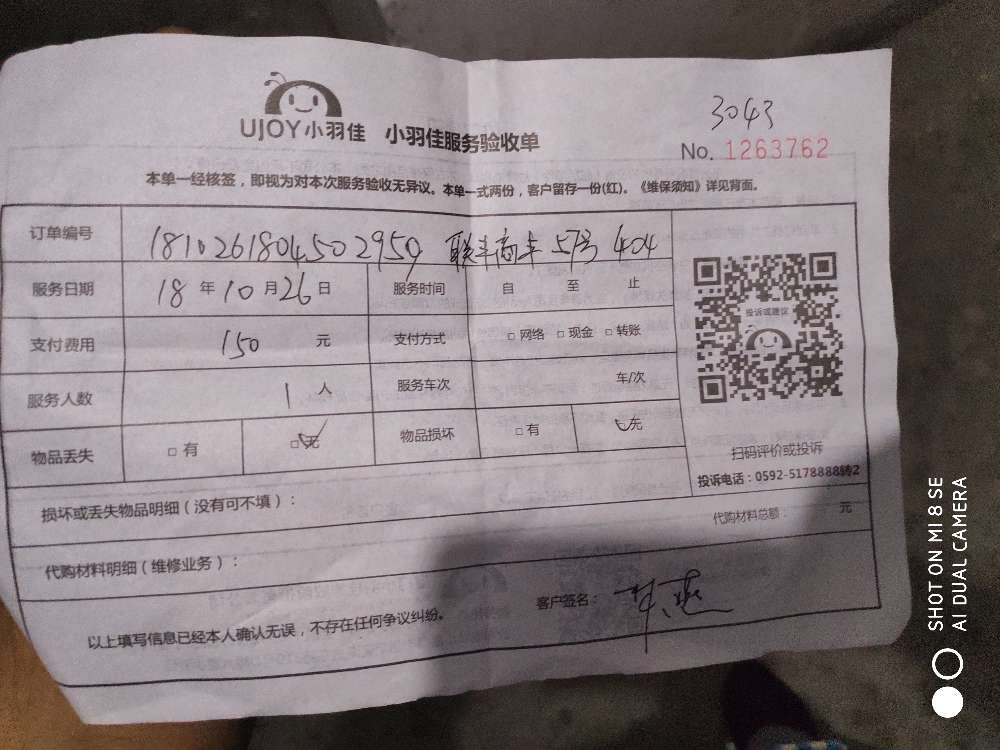 3043
UJOY小羽佳 小羽佳服务验收单
No. 1263762
本单一经核签，即视为对本次服务验收无异议。本单一式两份，客户留存一份(红)。《维保须知》详见背面。
订单编号 181026180450 2959 联丰商 57号 404
服务日期 18 年 10 月 26 日 服务时间 自 至 止
支付费用 150 元 支付方式 □ 网络 □ 现金 □ 转账
服务人数 1 人 服务车次 车/次
物品丢失 □ 有 □ 无 物品损坏 □ 有 无
投诉或建议
扫码评价或投诉
投诉电话：0592-5178888转2
损坏或丢失物品明细（没有可不填）：
代购材料总额： 元
代购材料明细（维修业务）：
客户签名：
以上填写信息已经本人确认无误，不存在任何争议纠纷。
SHOT ON MI 8 SE
AI DUAL CAMERA